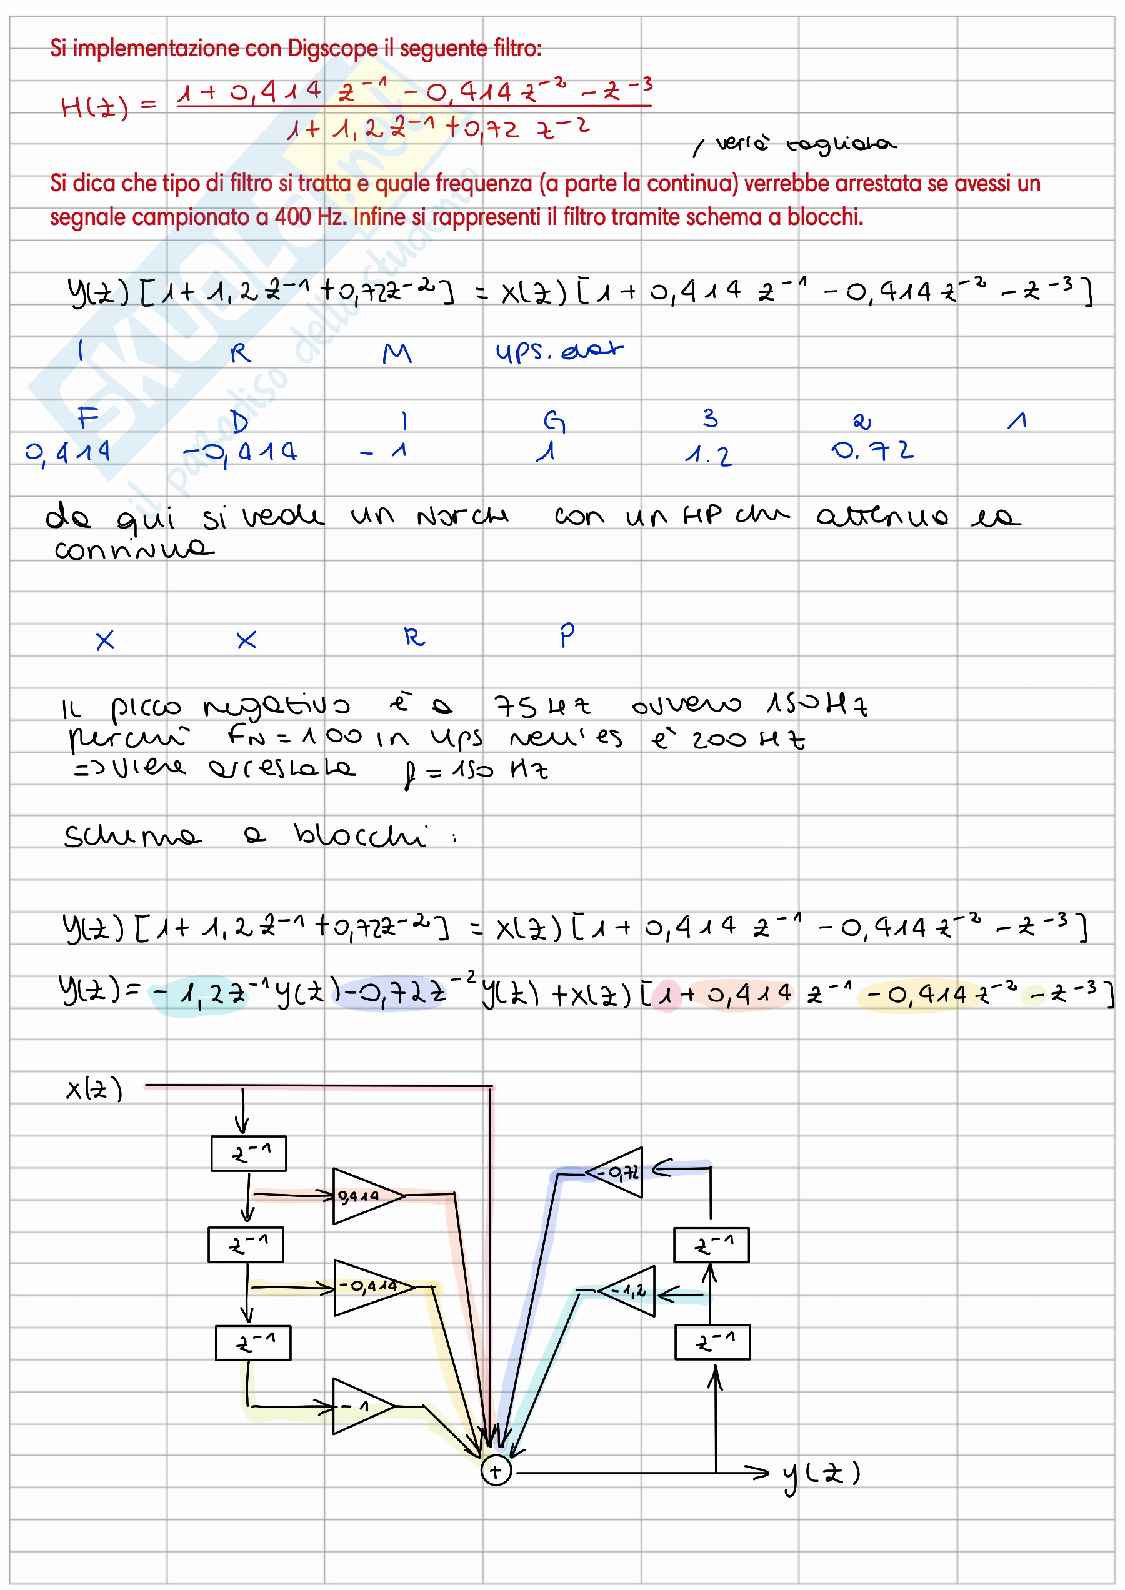 Si implementazione con Digscope il seguente filtro:
H(z) = 1 + 0,414 z⁻¹ - 0,414 z⁻² - z⁻³
1 + 1,2 z⁻¹ + 0,72 z⁻²
, verrà tagliata
Si dica che tipo di filtro si tratta e quale frequenza (a parte la continua) verrebbe arrestata se avessi un
segnale campionato a 400 Hz. Infine si rappresenti il filtro tramite schema a blocchi.
y(z) [1 + 1,2 z⁻¹ + 0,72 z⁻²] = x(z) [1 + 0,414 z⁻¹ - 0,414 z⁻² - z⁻³]
I R M ups.dat
F D I G 3 2 1
0,414 -0,414 -1 1 1.2 0.72
da qui si vede un Notch con un HP che attenua la
continua
X X R P
Il picco negativo è a 75 Hz ovvero 150 Hz
perché FN = 100 in ups nell'es è 200 Hz
=> viene arrestata f = 150 Hz
schema a blocchi :
y(z) [1 + 1,2 z⁻¹ + 0,72 z⁻²] = x(z) [1 + 0,414 z⁻¹ - 0,414 z⁻² - z⁻³]
y(z) = - 1,2 z⁻¹ y(z) - 0,72 z⁻² y(z) + x(z) [1 + 0,414 z⁻¹ - 0,414 z⁻² - z⁻³]
x(z)
z⁻¹
0,414
-0,72
z⁻¹
z⁻¹
-0,414
-1,2
z⁻¹
z⁻¹
-1
+
y(z)
SKUOLA.net
il paradiso dello studente